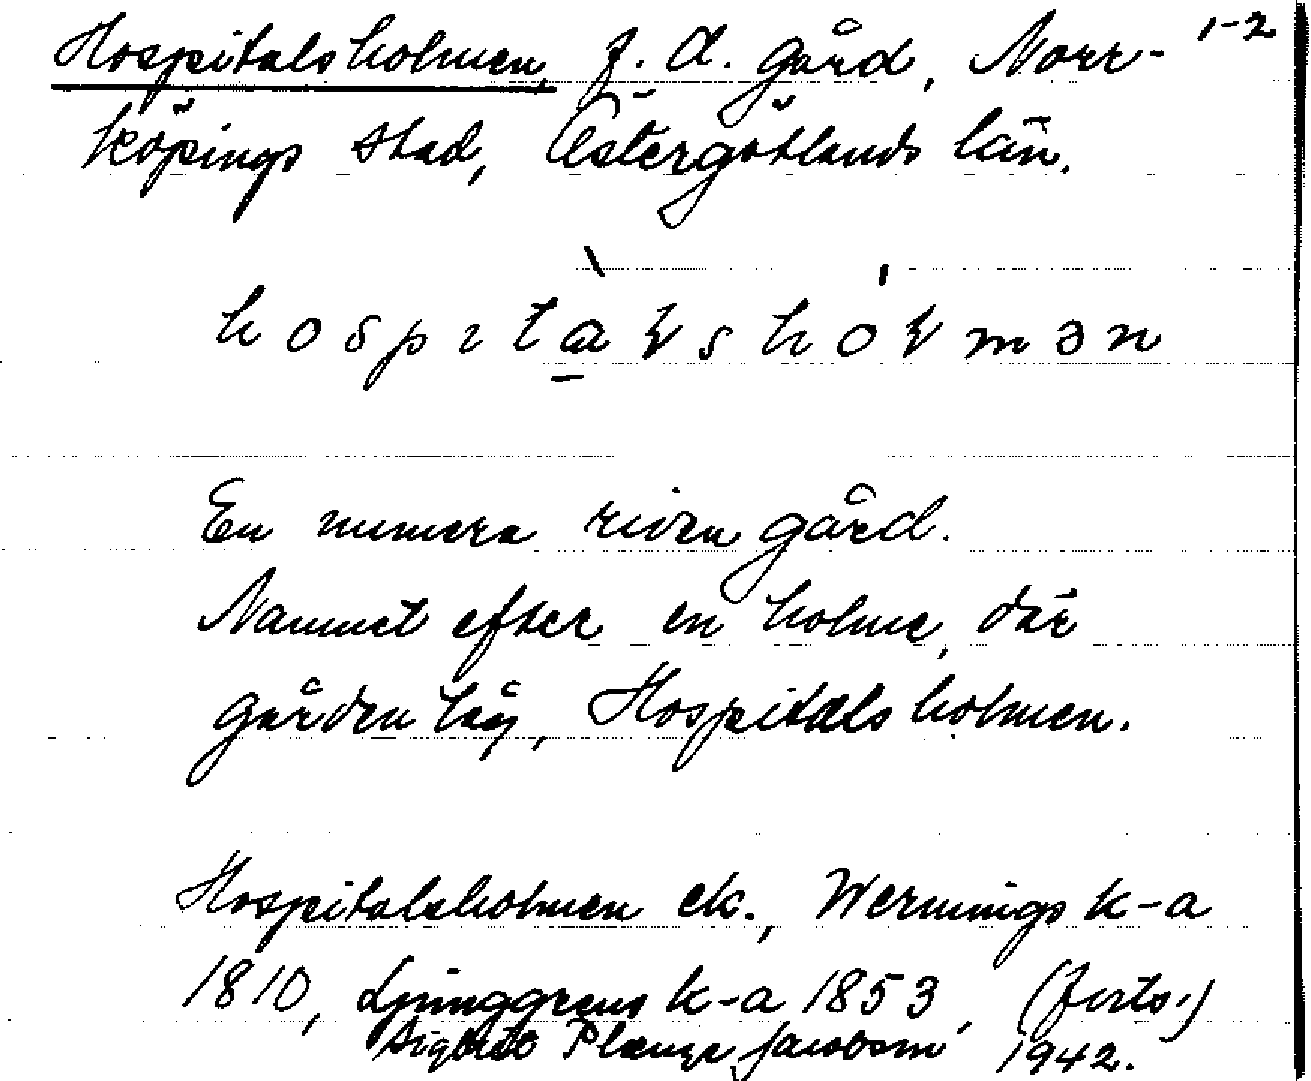 Hospitalsholmen, f. d. gård, Norr- 1-2
köpings stad, Östergötlands län.
hospitàlshólmən
En numera riven gård.
Namnet efter en holme, där
gården låg, Hospitalsholmen.
Hospitalsholmen ek., Wernings k-a
1810, Ljunggrens k-a 1853, (forts.)
Sigbrit Plænge Jacobson 1942.